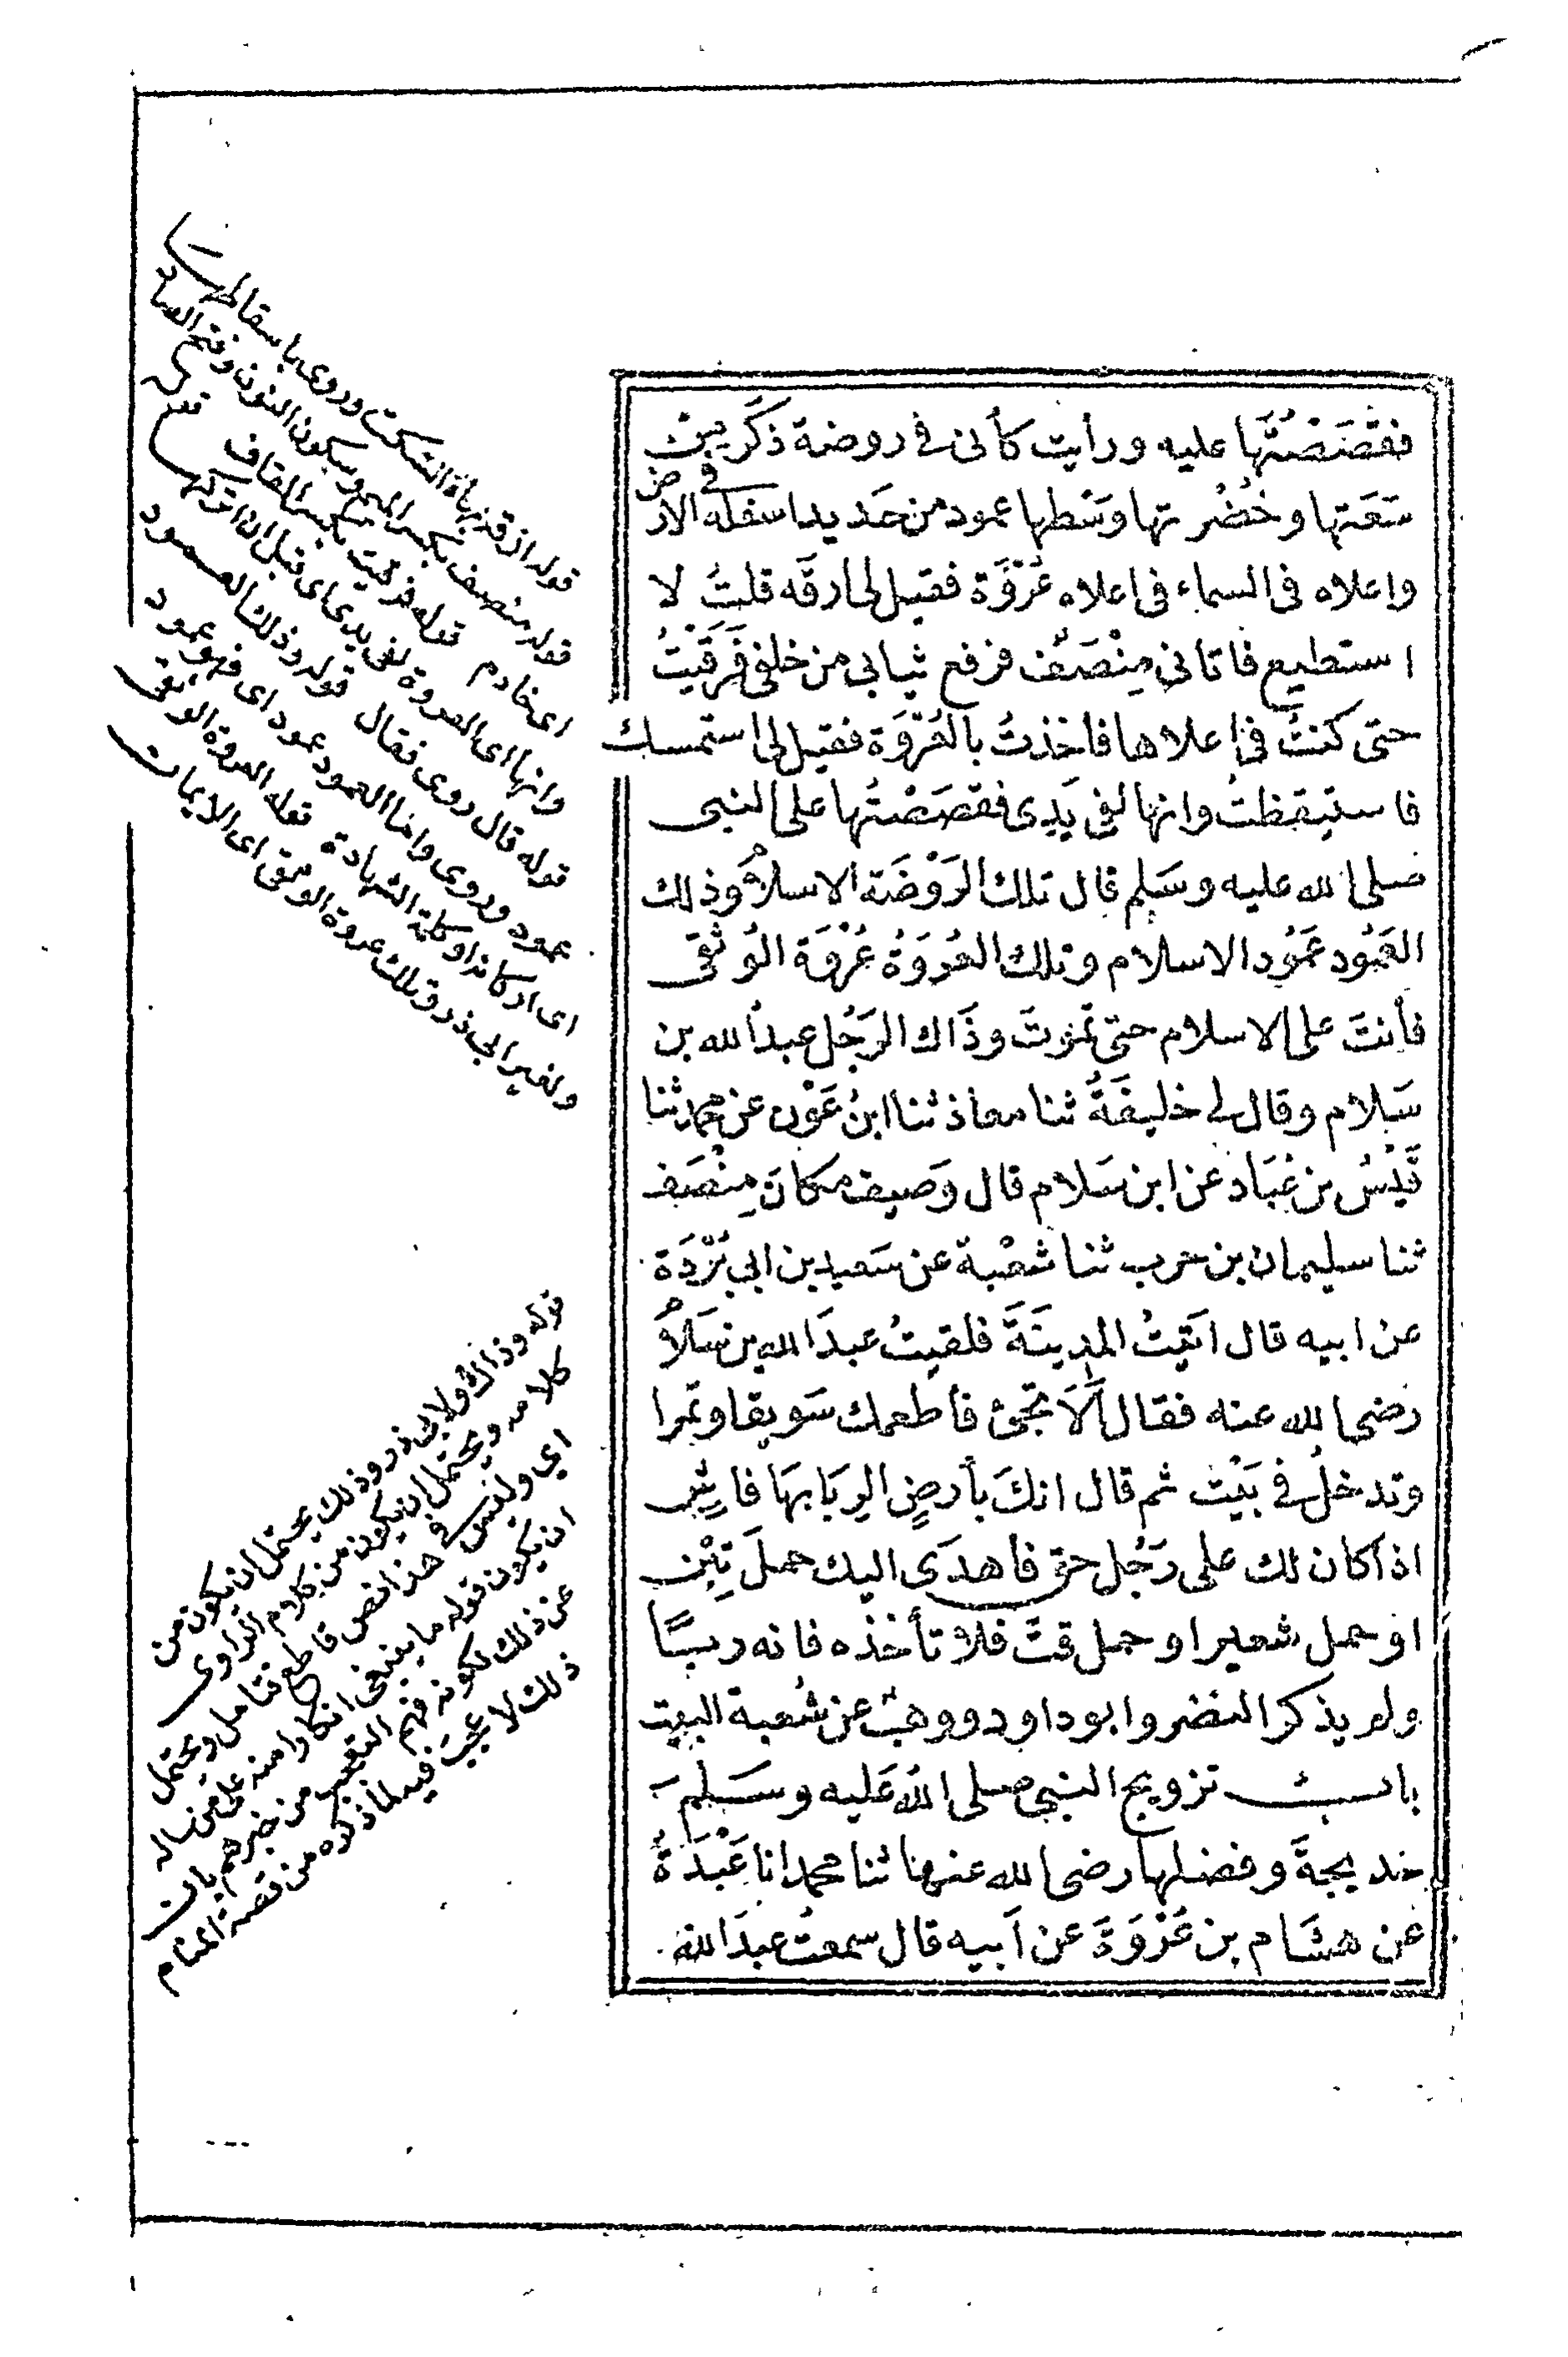 فقصَصْتُها عليه ورأيت كأنى فى روضة ذكَر مِن
سَعَتِها وخُضْرتها وَسْطها عمود من حَديد اسفله فى الارض
واعلاه فى السماء فى اعلاه عُرْوَة فقيل لى ارقَه قلتُ لا
استطيع فاتانى مِنْصَف فرفع ثيابى من خلفى فَرَقَيْتُ
حتى كنتُ فى اعلاها فاخذتُ بالعُرْوَة فقيل لى استمسك
فاستيقظتُ وانها لفى يَدِى فقصَصْتُها على النبى
صلى الله عليه وسَلم قال تلك الرَوْضَة الاسلامُ وذلك
العَمُود عَمُود الاسلام وتلك العُروَةُ عُرْوَة الوُثقى
فأنتَ على الاسلام حتى تموتَ وذَاك الرَجُل عبدُ الله بن
سَلام وقال لى خليفَةُ ثنا معاذ ثنا ابنُ عَوْن عن محمد ثنا
قَيْسُ بن عُبَاد عن ابن سَلام قال وَصيف مكان مِنْصَف
ثنا سليمان بن حرب ثنا شعْبة عن سَعيد بن ابى بُرْدَة
عن ابيه قال اتَيْتُ المدِينَةَ فلقيتُ عبدَ الله بن سَلامٍ
رضى الله عنه فقال ألَا تجئ فأطعمك سَويقا وتمرا
وتدخلُ فى بَيْت ثم قال انكَ بأرضٍ الرِبَا بهَا فاشٍ
اذا كان لك على رَجُل حق فاهدَى اليك حملَ تِبْن
او حمل شعير او حمل قتّ فلا تأخذه فانه ربًا
ولم يذكر النضر وابو داود ووهبٌ عن شُعبة البيت
باب تزويج النبى صلى الله عَليه وسَلم
خديجةَ وفضلها رضى الله عنها ثنا محمد انا عَبْدَةُ
عن هشَام بن عُرْوَةَ عن اَبيه قال سمعتُ عبدَ الله
قوله ارقه بهاء السكت وروى باسقاطها
قوله منصف بكسر الميم وسكون النون وفتح الصاد
اى خادم قوله فرقيت بكسر القاف قوله
وانها اى العروة لفى يدى اى قبل ان اتركها
قوله قال روى فقال قوله وذلك العمود
عمود وروى واما العمود عمود اى فهو عمود
اى اركانه او كلمة الشهادة قوله العروة الوثقى
ولغير ابى ذر وتلك عروة الوثقى اى الايمان
قوله وذاك ولابى ذر وذلك يحتمل ان يكون من
كلامه ويحتمل ان يكون من كلام الراوى
اي وليس فى هذا نص قاطع فتامل ويحتمل
ان يكون قوله ما ينبغى انكارا منه على من ساله
عن ذلك لكونه فهم التعجب من خبرهم بان
ذلك لا عجب فيه لما ذكره من قصة المنام